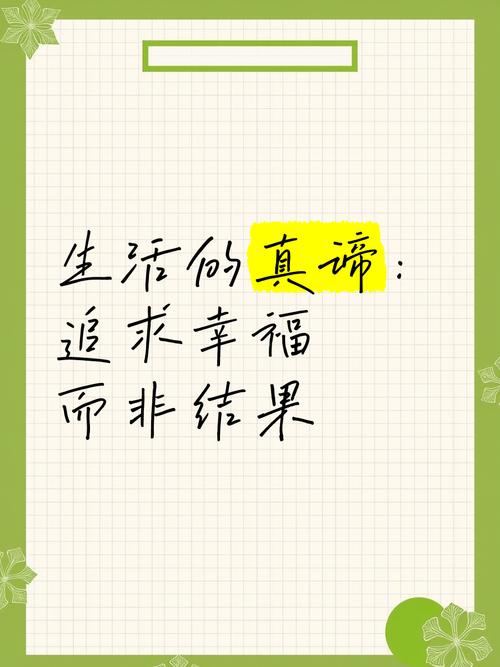 生活的真谛：
追求幸福
而非结果